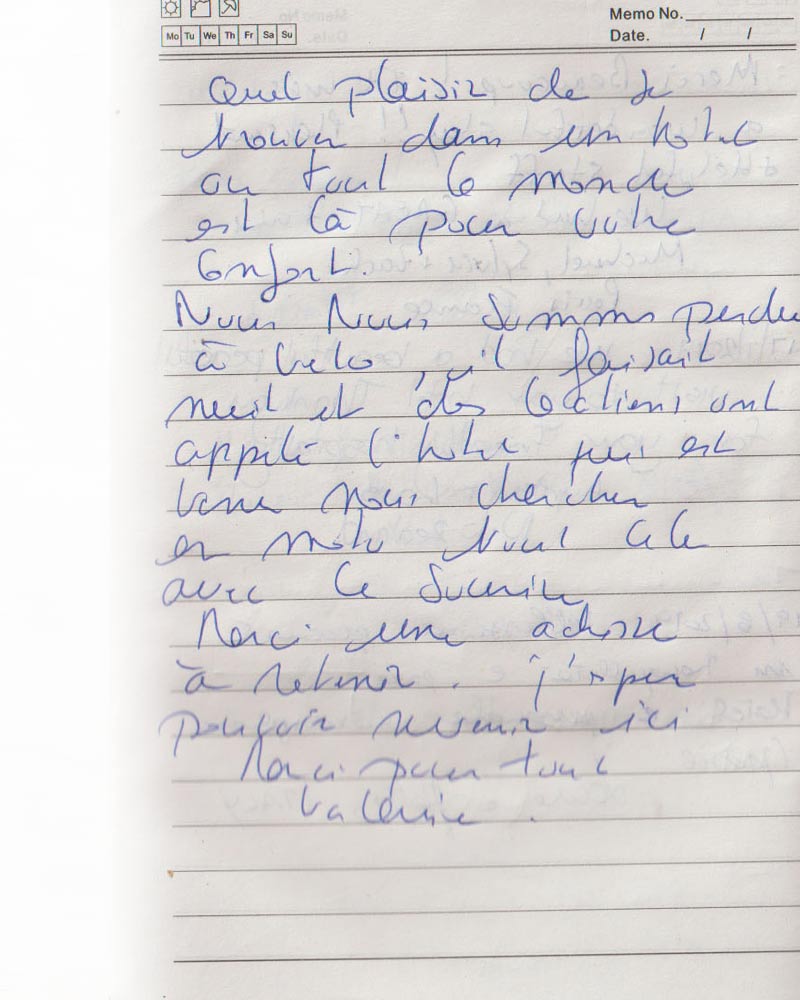 Memo No.
Mo Tu We Th Fr Sa Su
Date. / /
Quel plaisir de se
trouver dans un hotel
ou tout le monde
est là pour votre
Confort.
Nous Nous sommes perdu
à velo, il faisait
nuit et des locaux ont
appelé l'hotel qui est
venu nous chercher
en moto tout cela
avec le sourire
Merci une adresse
à retenir. j'espere
pouvoir revenir ici
Merci pour tout
Valerie.